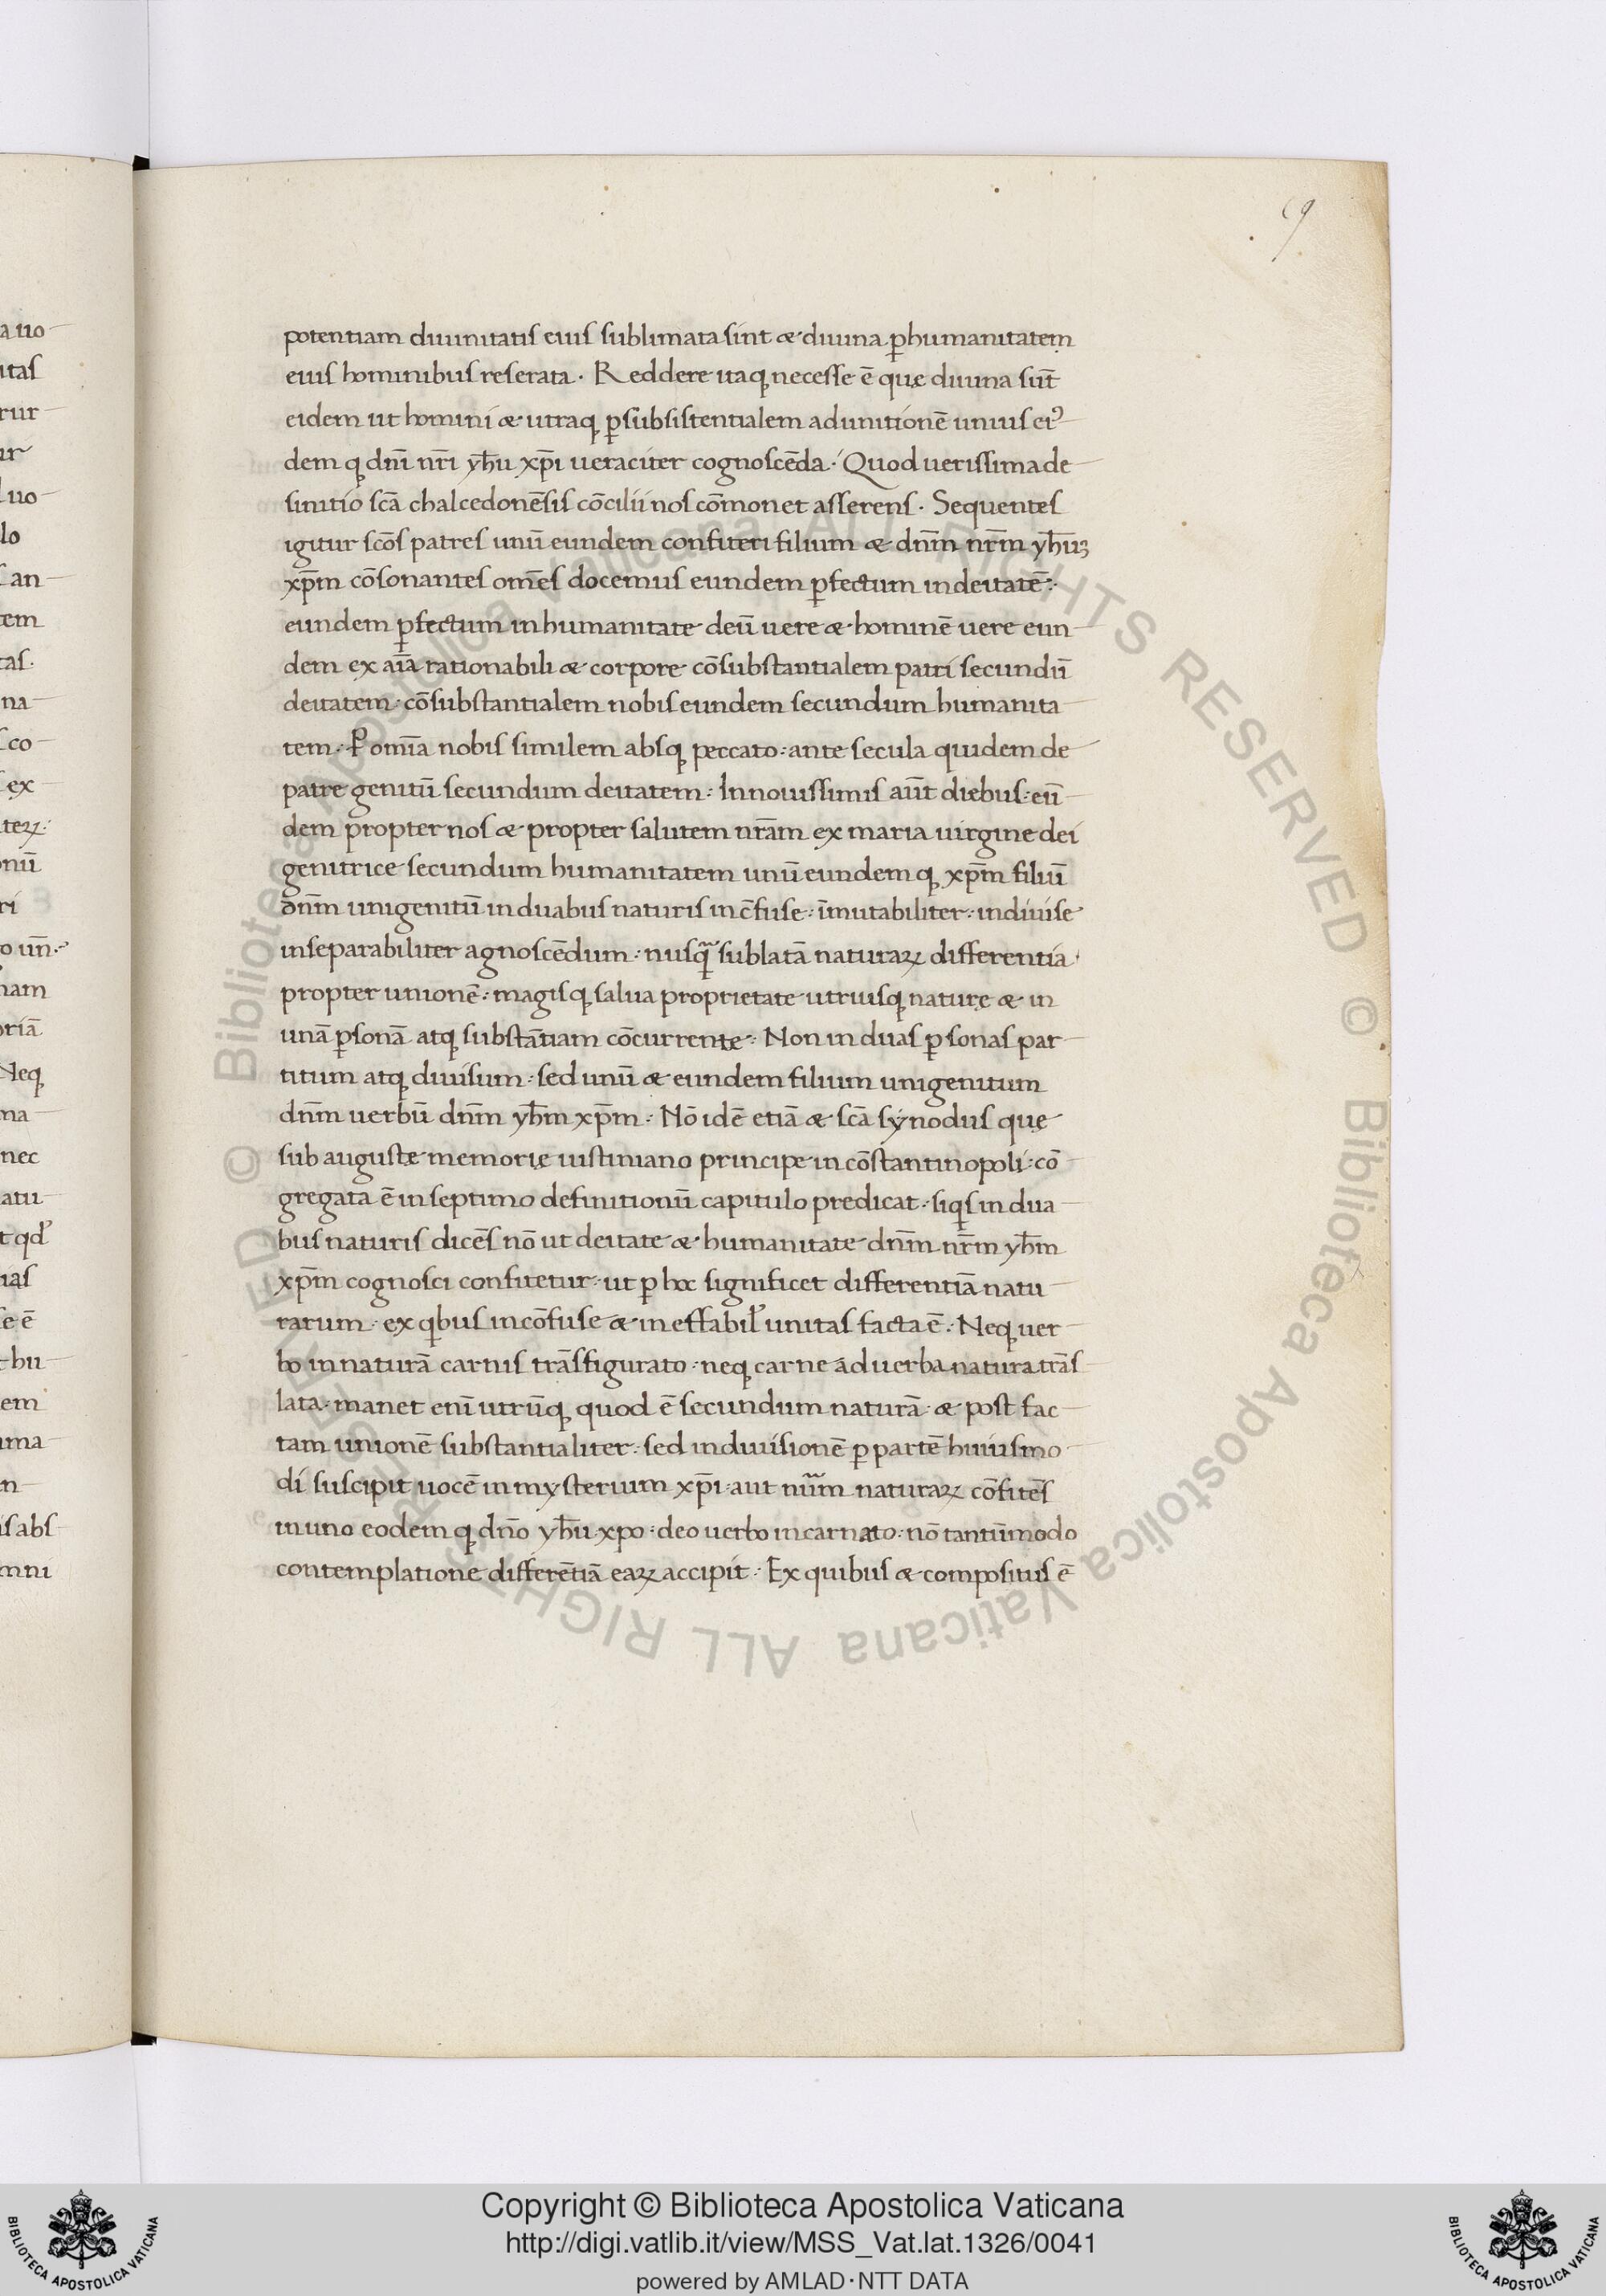 19
potentiam diuinitatis eius sublimata sint & diuina ꝑ humanitatem
eius hominibus reserata. Reddere itaq; necesse ē quę diuina sūt
eidem ut homini & utraq; ꝑ subsistentialem adunitionē unius ei'
dem q; dn̄i nr̄i yh̄u xp̄i ueraciter cognoscēda. Quod uerissima de
finitio scā chalcedonēsis cōcilii nos cōmonet asserens. Sequentes
igitur scōs patres unū eundem confiteri filium & dn̄m nr̄m yh̄uꝫ
xp̄m cōsonantes om̄es docemus eundem ꝑfectum in deitatē:
eundem ꝑfectum in humanitate deū uere & hominē uere eun
dem ex aīa rationabili & corpore cōsubstantialem patri secundū
deitatem. cōsubstantialem nobis eundem secundum humanita
tem. P omīa nobis similem absq; peccato: ante secula quidem de
patre genitū secundum deitatem: In nouissimis aūt diebus: eū
dem propter nos & propter salutem nrām ex maria uirgine dei
genitrice secundum humanitatem unū eundem q; xp̄m filiū
dn̄m unigenitū in duabus naturis in cōfuse: īmutabiliter: indiuise
inseparabiliter agnoscēdum: nusq̃ sublatā naturaꝝ differentia
propter unionē: magisq; salua proprietate utriusq; naturę & in
unā ꝑsonā atq; substātiam cōcurrente: Non in duas ꝑsonas par
titum atq; diuisum: sed unū & eundem filium unigenitum
dn̄m uerbū dn̄m yh̄m xp̄m: Nō idē etiā & scā synodus quę
sub augustę memorię iustiniano principe in cōstantinopoli: cō
gregata ē in septimo definitionū capitulo predicat: siqs in dua
bus naturis dicēs nō ut deitate & humanitate dn̄m nr̄m yh̄m
xp̄m cognosci confitetur: ut ꝑ hoc significet differentiā natu
rarum: ex qbus in cōfuse & ineffabil' unitas facta ē: Neq; uer
bo in naturā carnis trāsfigurato: neq; carne ad uerba natura trās
lata: manet enī utrūq; quod ē secundum naturā: & post fac
tam unionē substantialiter: sed in diuisionē ꝑ partē huiusmo
di suscipit uocē in mysterium xp̄i aut nūm naturaꝝ cōfitēs
in uno eodem q; dn̄o yh̄u xpo: deo uerbo incarnato: nō tantūmodo
contemplatione differētiā eaꝝ accipit: Ex quibus & compositus ē
© Biblioteca Apostolica Vaticana ALL RIGHTS RESERVED © Biblioteca Apostolica Vaticana ALL RIGHTS RESERVED
Copyright © Biblioteca Apostolica Vaticana
http://digi.vatlib.it/view/MSS_Vat.lat.1326/0041
powered by AMLAD·NTT DATA
BIBLIOTECA APOSTOLICA VATICANA
BIBLIOTECA APOSTOLICA VATICANA